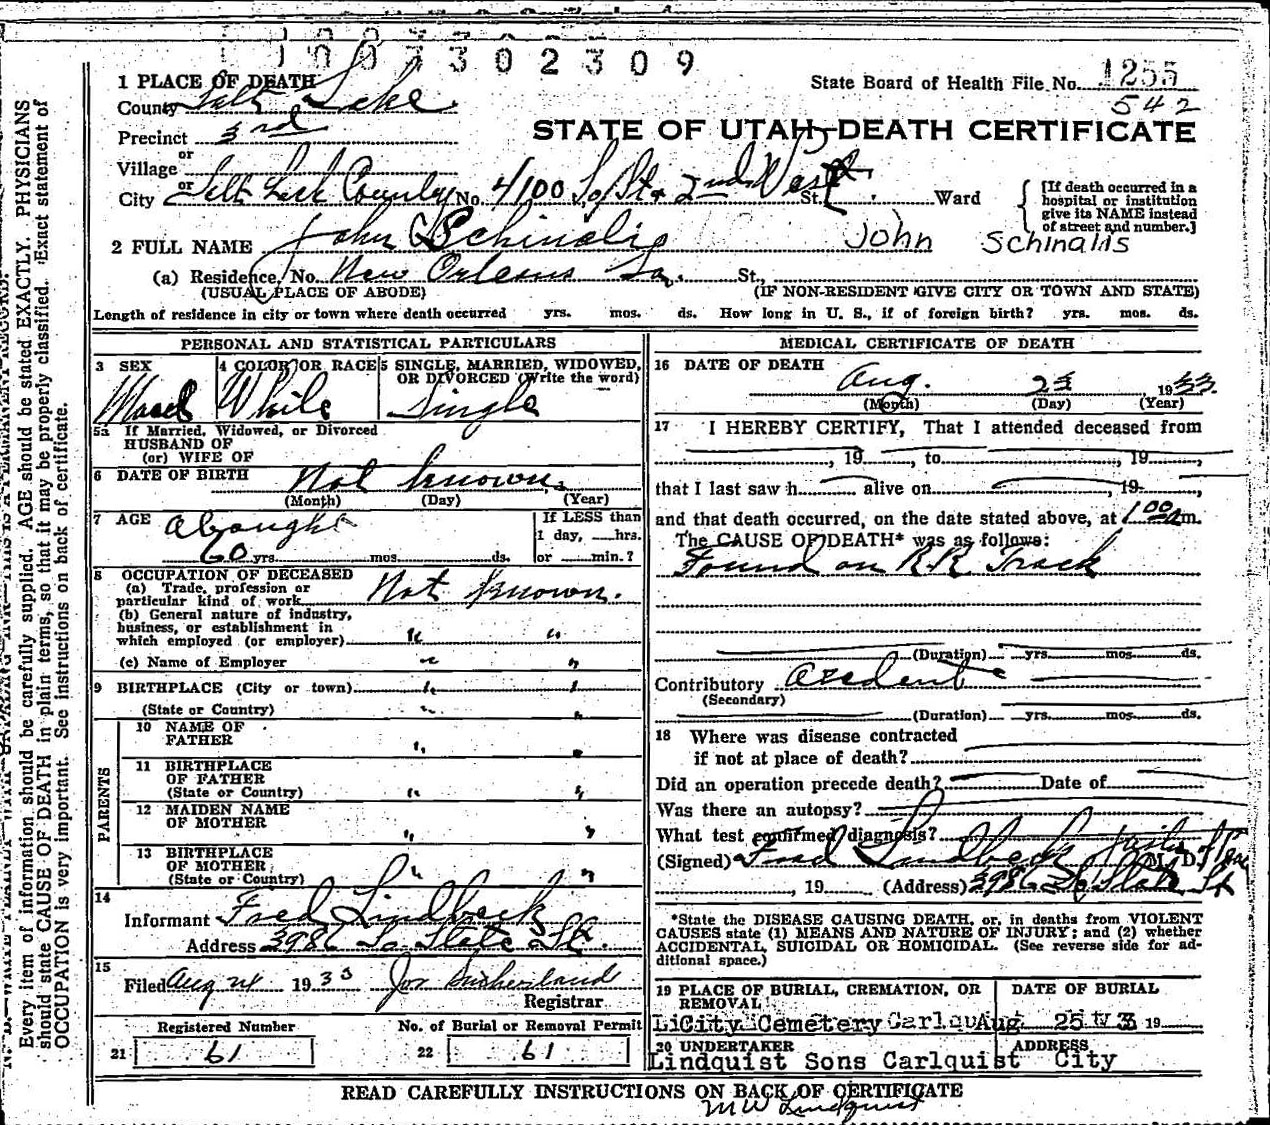 1003302309
1 PLACE OF DEATH
State Board of Health File No. 1255
County Salt Lake
542
Precinct 3rd
STATE OF UTAH—DEATH CERTIFICATE
or
Village
or
City Salt Lake County No. 4100 So St & 2nd West St. Ward
[If death occurred in a hospital or institution give its NAME instead of street and number.]
2 FULL NAME John Schinalis John Schinalis
(a) Residence, No. New Orleans La. St.,
(USUAL PLACE OF ABODE) (IF NON-RESIDENT GIVE CITY OR TOWN AND STATE)
Length of residence in city or town where death occurred yrs. mos. ds. How long in U. S., if of foreign birth? yrs. mos. ds.
PERSONAL AND STATISTICAL PARTICULARS
3 SEX 4 COLOR OR RACE 5 SINGLE, MARRIED, WIDOWED,
OR DIVORCED (Write the word)
White Single
5a If Married, Widowed, or Divorced
HUSBAND OF
(or) WIFE OF
6 DATE OF BIRTH Not known.
(Month) (Day) (Year)
7 AGE Abought If LESS than
1 day, hrs.
60 yrs. mos. ds. or min.?
8 OCCUPATION OF DECEASED
(a) Trade, profession or
particular kind of work Not known.
(b) General nature of industry,
business, or establishment in
which employed (or employer) " "
(c) Name of Employer " "
9 BIRTHPLACE (City or town) " "
(State or Country) " "
PARENTS
10 NAME OF
FATHER " "
11 BIRTHPLACE
OF FATHER
(State or Country) " "
12 MAIDEN NAME
OF MOTHER " "
13 BIRTHPLACE
OF MOTHER
(State or Country) " "
14
Informant Fred Lindbeck
Address 3986 So State St.
15
Filed Aug 24 1933 Jos Sutherland
Registrar
Registered Number No. of Burial or Removal Permit
21 61 22 61
MEDICAL CERTIFICATE OF DEATH
16 DATE OF DEATH
Aug. 23 1933
(Month) (Day) (Year)
17 I HEREBY CERTIFY, That I attended deceased from
, 19 , to , 19 ,
that I last saw h alive on , 19 ,
and that death occurred, on the date stated above, at 1 00 am.
The CAUSE OF DEATH* was as follows:
Found on R.R. Track
(Duration) yrs. mos. ds.
Contributory
(Secondary)
(Duration) yrs. mos. ds.
18 Where was disease contracted
if not at place of death?
Did an operation precede death? Date of
Was there an autopsy?
What test confirmed diagnosis?
(Signed) Fred Lindbeck M. D.
, 19 (Address) 3986 So State St
*State the DISEASE CAUSING DEATH, or, in deaths from VIOLENT
CAUSES state (1) MEANS AND NATURE OF INJURY; and (2) whether
ACCIDENTAL, SUICIDAL OR HOMICIDAL. (See reverse side for ad-
ditional space.)
19 PLACE OF BURIAL, CREMATION, OR DATE OF BURIAL
REMOVAL
City Cemetery Aug 25 33 19
20 UNDERTAKER ADDRESS
Lindquist Sons Carlquist City
READ CAREFULLY INSTRUCTIONS ON BACK OF CERTIFICATE
MW Lindquist
Every item of information should be carefully supplied. AGE should be stated EXACTLY. PHYSICIANS
should state CAUSE OF DEATH in plain terms, so that it may be properly classified. Exact statement of
OCCUPATION is very important. See instructions on back of certificate.